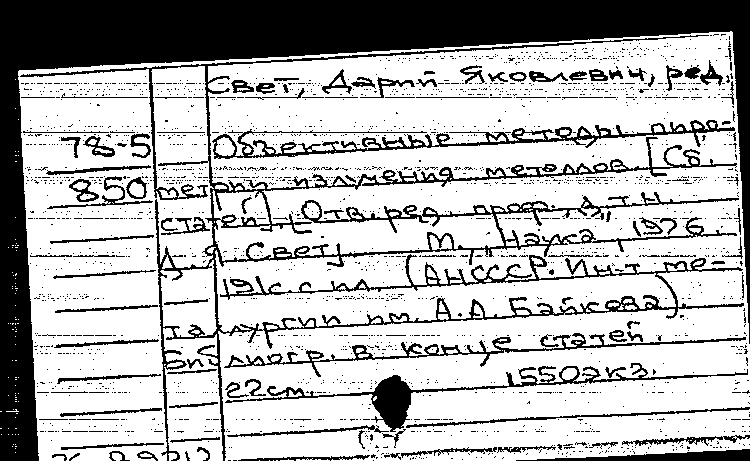 Свет, Дарий Яковлевич, ред.
78-5 Объективные методы пиро-
850 метрии излучения металлов. [Сб.
статей]. [Отв. ред. проф., д.т.н.
Д. Я. Свет]. М., "Наука", 1976.
191с. с ил. (АН СССР. Ин-т ме-
таллургии им. А.А. Байкова).
Библиогр. в конце статей.
22см. 1550экз.